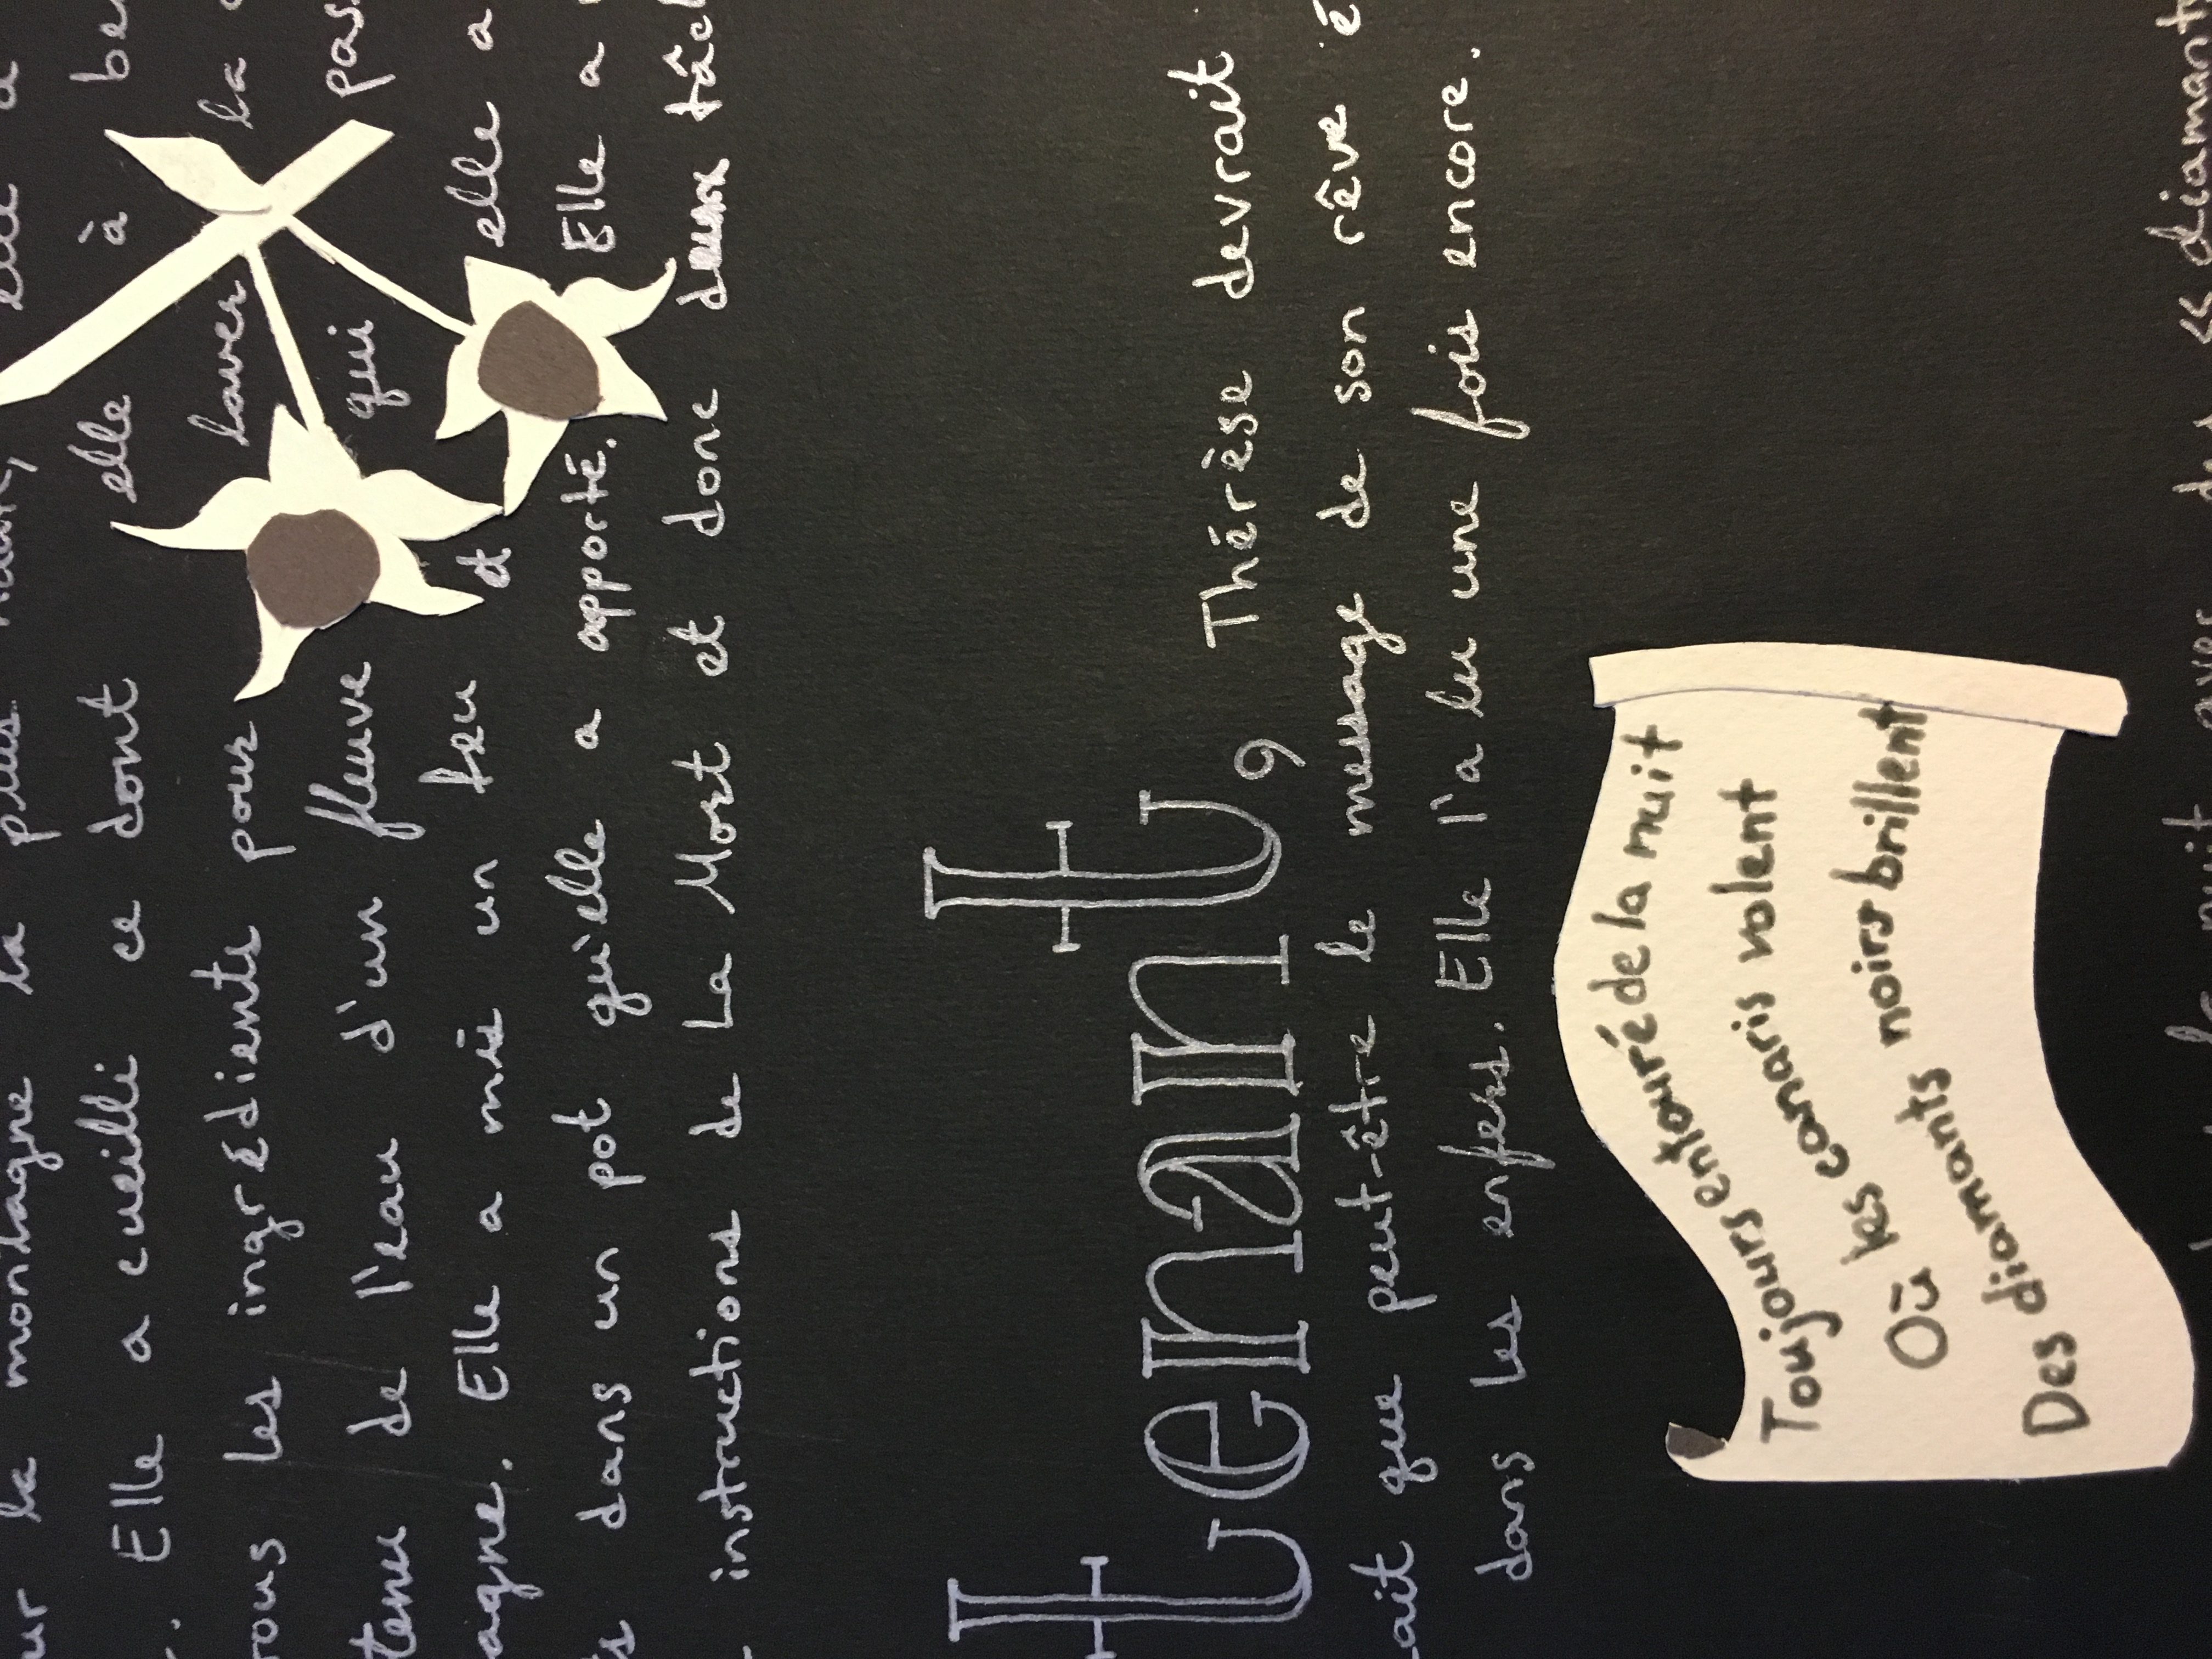 ur la montagne la plus haute, elle a
. Elle a cueilli ce dont elle à be
ous les ingrédients pour laver la
tenu de l'eau d'un fleuve qui pas
agne. Elle a mis un feu et elle a
ts dans un pot qu'elle a apporté. Elle a
instructions de La Mort et donc tâch
tenant, Thérèse devrait
ait que peut-être le message de son rêve é
dans les enfers. Elle l'a lu une fois encore.
Toujours entouré de la nuit
Où les canaris volent
Des diamants noirs brillent
la nuit avec des « diamant